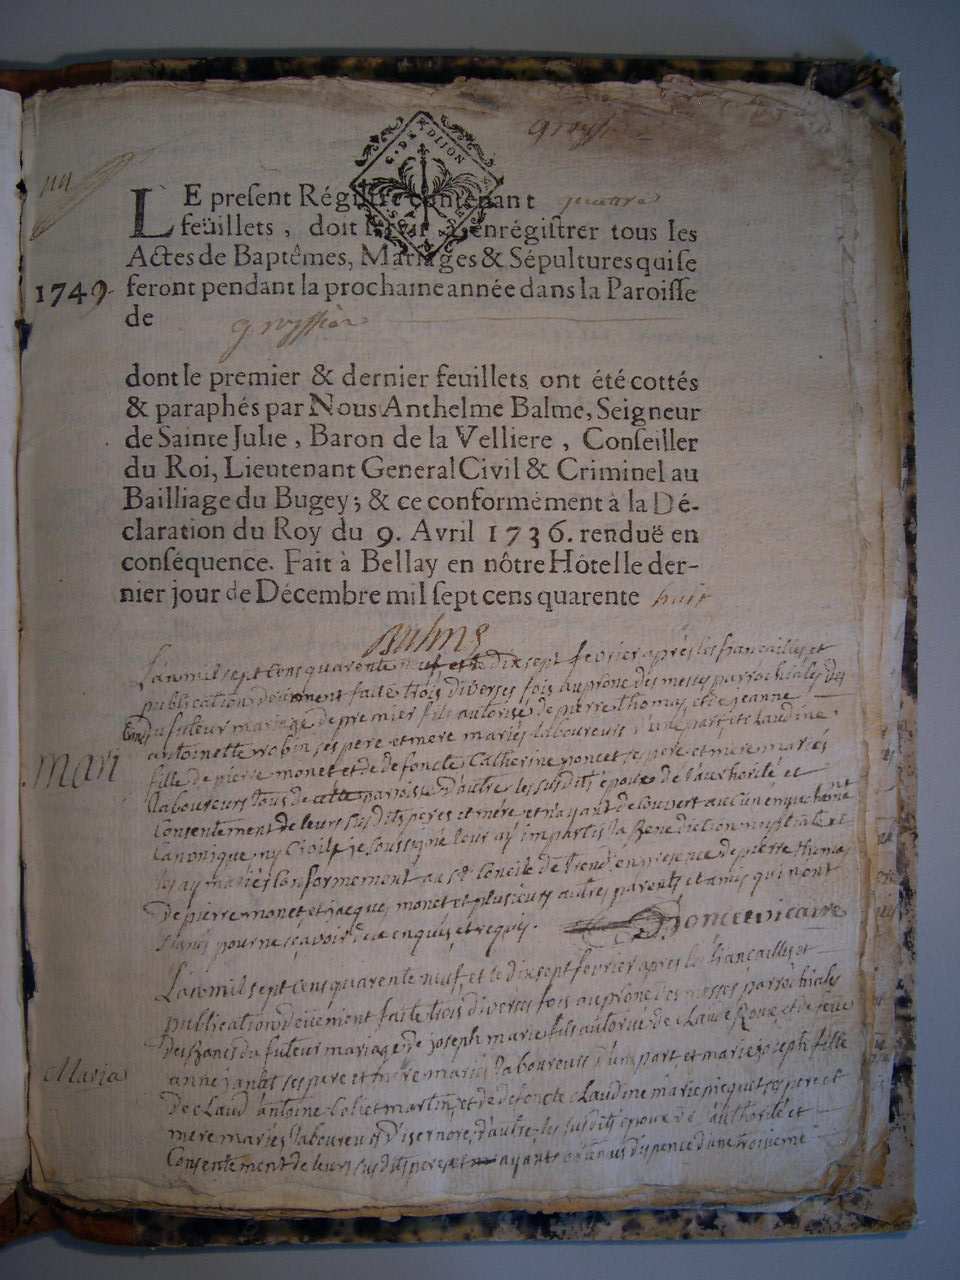 G. DE DIJON
LE present Régistre contenant quatre
feüillets, doit servir à enrégistrer tous les
Actes de Baptêmes, Mariages & Sépultures qui se
1749
feront pendant la prochaine année dans la Paroisse
de groyssia
dont le premier & dernier feuillets ont été cottés
& paraphés par Nous Anthelme Balme, Seigneur
de Sainte Julie, Baron de la Velliere, Conseiller
du Roi, Lieutenant General Civil & Criminel au
Bailliage du Bugey; & ce conformément à la Dé-
claration du Roy du 9. Avril 1736. renduë en
conséquence. Fait à Bellay en nôtre Hôtel le der-
nier jour de Décembre mil sept cens quarente huit
L'an mil sept cens quarente neuf et le dix sept fevrier après les fiançailles et
publication deüement faite trois diverses fois au prone des messes parrochiales des
du futeur mariage de pierre fils autorisé de pierre Thomas, et de jeanne
antoinette robin ses pere et mere mariés laboureurs d'une part, et Claudine
Mari
fille de pierre monet et de defuncte Catherine poncet ses pere et mere mariés
laboureurs tous de cette parroisse d'autre, les susdits époux de l'authorité et
Consentement de leurs susdits peres et mere, et n'ayant decouvert aucun empechement
Canonique, ny Civil, je soussigné leur ay impartis la Benediction nuptiale et
les ay mariés Conformement au St Concile de Trente, en presence de pierre thomas
de pierre monet et jacques monet et plusieurs autres parents et amis qui n'ont
signés pour ne sçavoir de ce enquis et requis. Poncet vicaire
L'an mil sept Cens quarente neuf, et le dix sept fevrier après les fiançailles et
publication deüement faite trois diverses fois au prone des messes parrochiales
des Bancs du futeur mariage de joseph marie fils autorisé de Claude Roux, et de
anne ses pere et mere mariés laboureurs d'une part, et marie joseph fille
Maria
de Claud antoine et de defuncte Claudine marie piequet ses pere et
mere mariés laboureurs d'isernore, d'autre, les susdits époux de l'authorité et
Consentement de leurs susdits peres et ayant obtenus dispence d'une troisieme